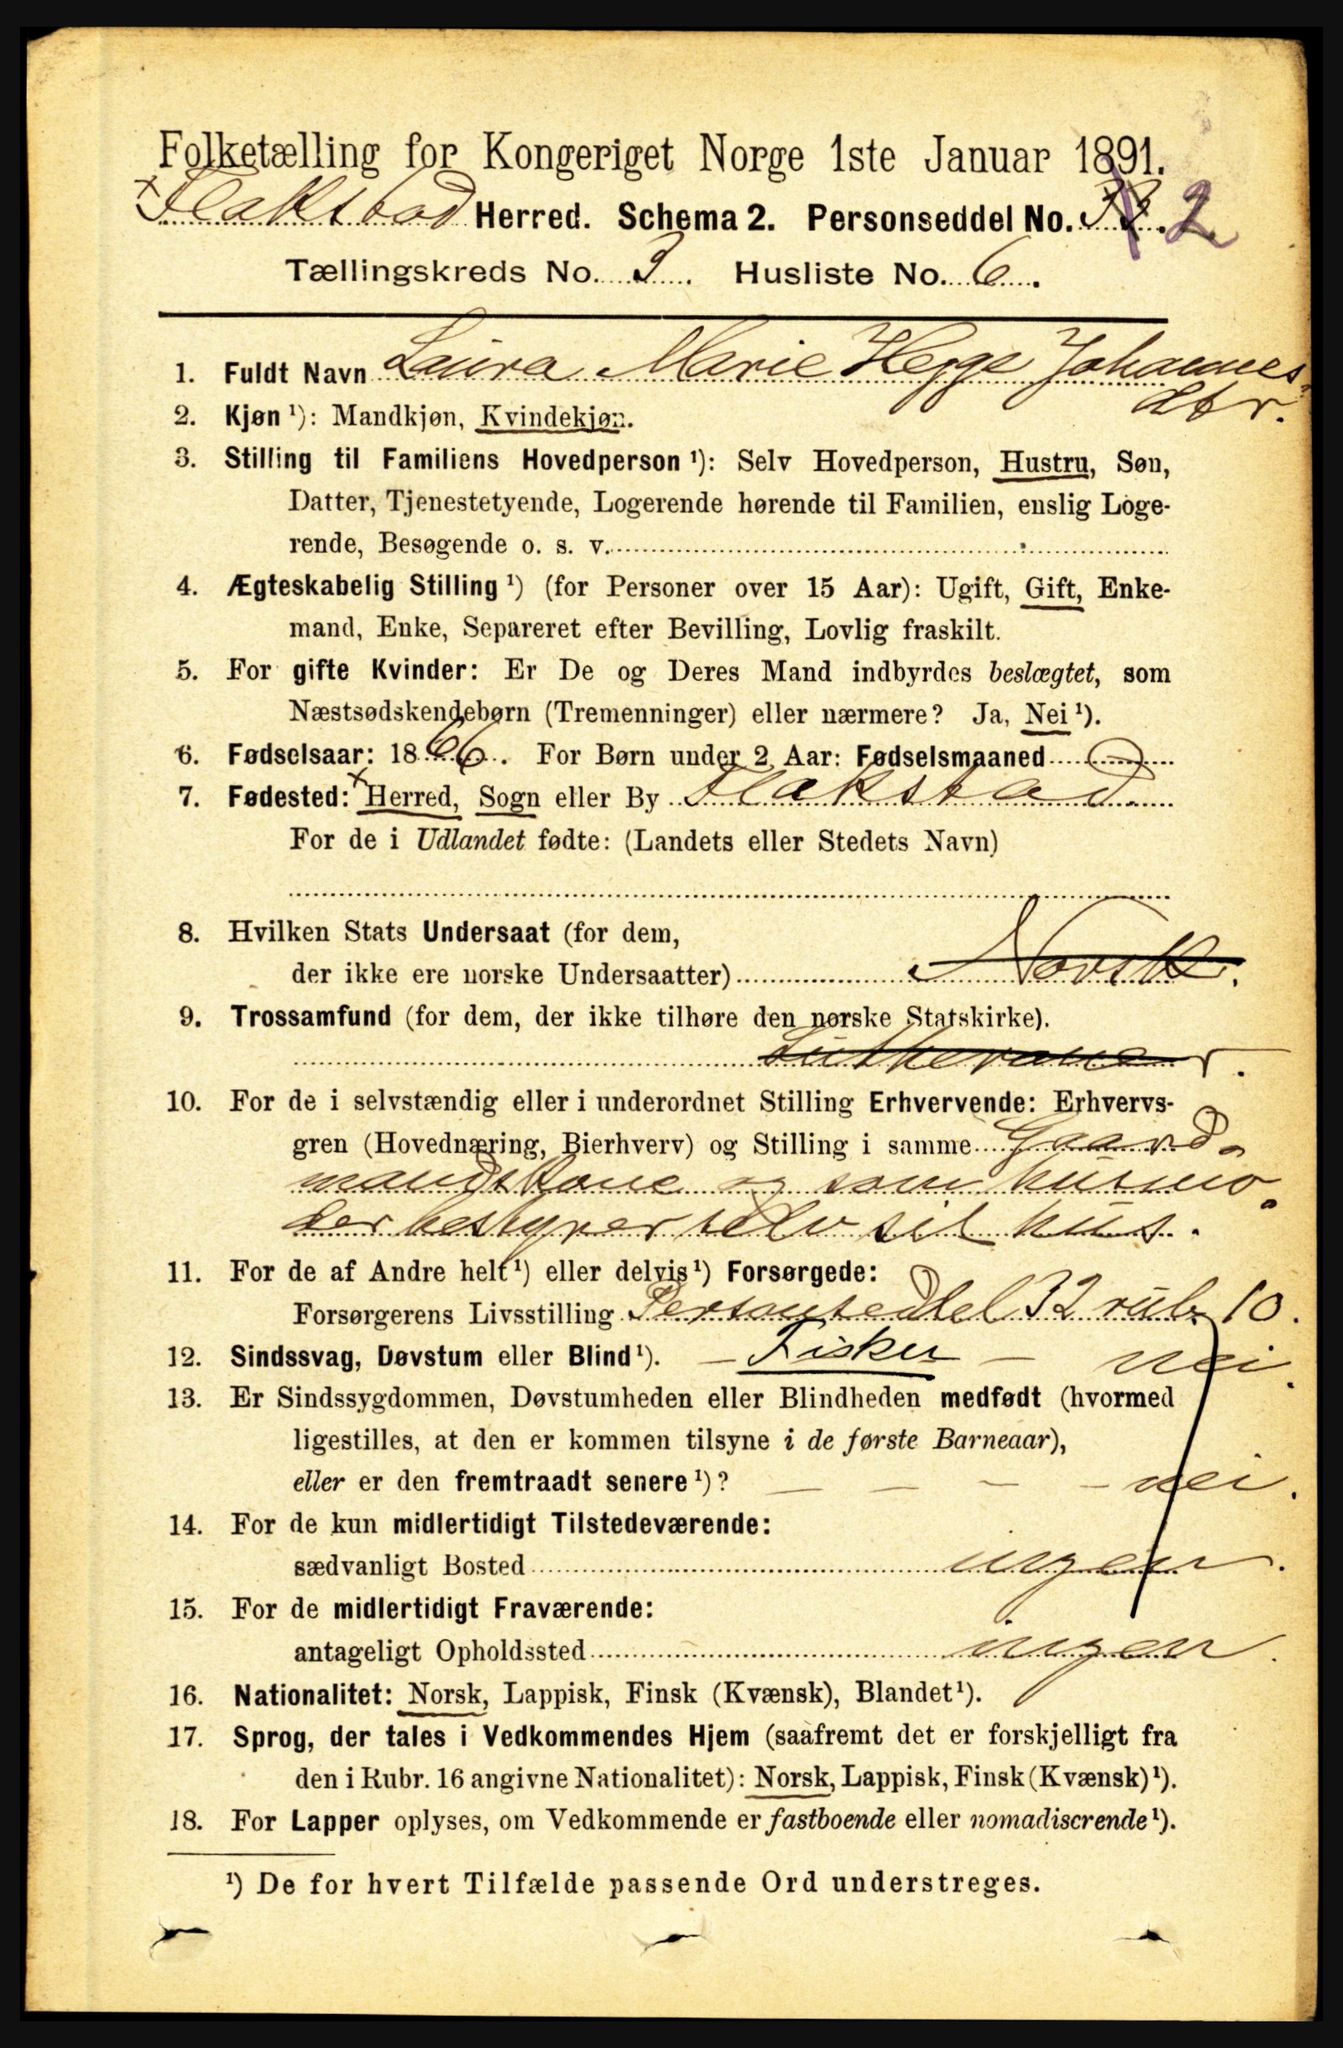 Folketælling for Kongeriget Norge 1ste Januar 1891.
Flakstad Herred. Schema 2. Personseddel No. 33. 2
Tællingskreds No. 3. Husliste No. 6.
1. Fuldt Navn Laura Marie Hegge Johannes
dtr.
2. Kjøn ¹): Mandkjøn, Kvindekjøn.
3. Stilling til Familiens Hovedperson ¹): Selv Hovedperson, Hustru, Søn,
Datter, Tjenestetyende, Logerende hørende til Familien, enslig Loge-
rende, Besøgende o. s. v.
4. Ægteskabelig Stilling ¹) (for Personer over 15 Aar): Ugift, Gift, Enke-
mand, Enke, Separeret efter Bevilling, Lovlig fraskilt.
5. For gifte Kvinder: Er De og Deres Mand indbyrdes beslægtet, som
Næstsødskendebørn (Tremenninger) eller nærmere? Ja, Nei ¹).
6. Fødselsaar: 1866. For Børn under 2 Aar: Fødselsmaaned
7. Fødested: Herred, Sogn eller By Flakstad.
For de i Udlandet fødte: (Landets eller Stedets Navn)
8. Hvilken Stats Undersaat (for dem,
der ikke ere norske Undersaatter) Norsk.
9. Trossamfund (for dem, der ikke tilhøre den norske Statskirke).
Lutheraner.
10. For de i selvstændig eller i underordnet Stilling Erhvervende: Erhvervs-
gren (Hovednæring, Bierhverv) og Stilling i samme Gaard-
mandskone og som husmo-
der bestyrer selv sit hus.
11. For de af Andre helt ¹) eller delvis ¹) Forsørgede:
Forsørgerens Livsstilling Personseddel 32 rubr 10.
12. Sindssvag, Døvstum eller Blind ¹). – Fisker – nei.
13. Er Sindssygdommen, Døvstumheden eller Blindheden medfødt (hvormed
ligestilles, at den er kommen tilsyne i de første Barneaar),
eller er den fremtraadt senere ¹)? – – – – nei.
14. For de kun midlertidigt Tilstedeværende:
sædvanligt Bosted ingen.
15. For de midlertidigt Fraværende:
antageligt Opholdssted ingen.
16. Nationalitet: Norsk, Lappisk, Finsk (Kvænsk), Blandet ¹).
17. Sprog, der tales i Vedkommendes Hjem (saafremt det er forskjelligt fra
den i Rubr. 16 angivne Nationalitet): Norsk, Lappisk, Finsk (Kvænsk) ¹).
18. For Lapper oplyses, om Vedkommende er fastboende eller nomadiserende ¹).
¹) De for hvert Tilfælde passende Ord understreges.